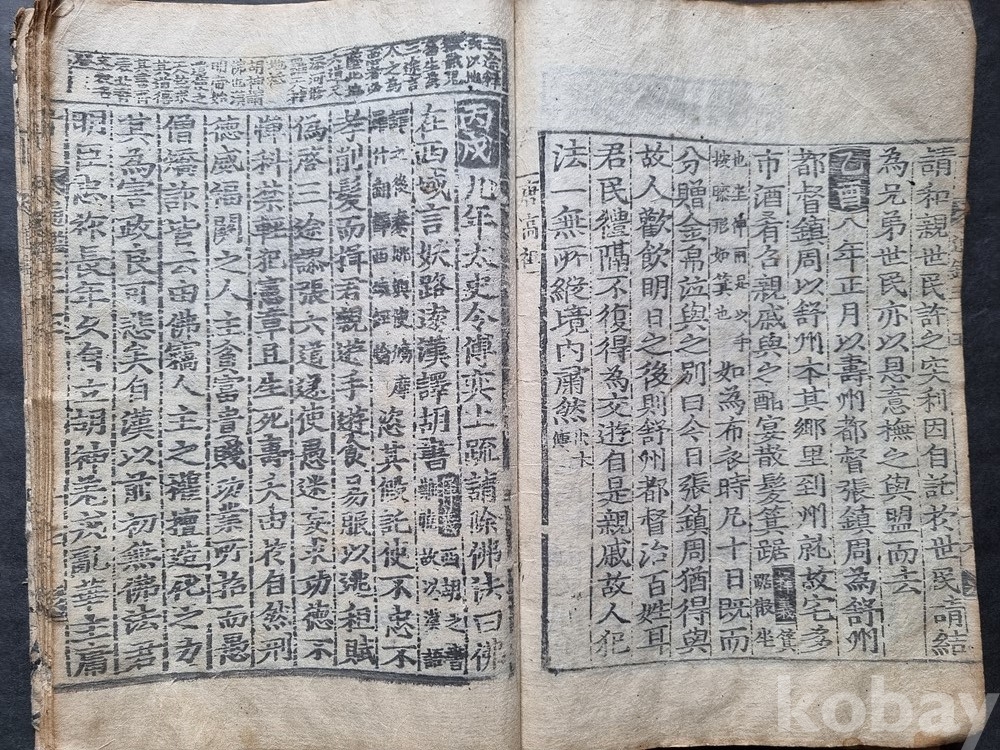 請和親世民許之突利因自託於世民請結
為兄弟世民亦以恩意撫之與盟而去
乙酉八年正月以壽州都督張鎮周為舒州
都督鎮周以舒州本其鄉里到州就故宅多
市酒肴召親戚與之酣宴散髮箕踞 箕 謂散坐
也坐伸兩足以手按膝形如箕也 如為布衣時凡十日既而
分贈金帛泣與之別曰今日張鎮周猶得與
故人歡飲明日之後則舒州都督治百姓耳
君民禮隔不復得為交遊自是親戚故人犯
法一無所縱境内肅然 出本傳
唐高祖
丙戌九年太史令傅奕上疏請除佛法曰佛
在西域言妖路遠漢譯胡書 西胡之書難曉故以漢語
譯之後秦姚興使鳩摩羅什翻譯西域經論 恣其假託使不忠不
孝削髮而揖君親遊手遊食易服以逃租賦
偽啓三途謬張六道遂使愚迷妄求功德不
憚科禁輕犯憲章且生死壽夭由於自然刑
德威福關之人主貧富貴賤功業所招而愚
僧矯詐皆云由佛竊人主之權擅造化之力
其為害政良可悲矣自漢以前初無佛法君
明臣忠祚長年久自立胡神羌戎亂華主庸
kobay